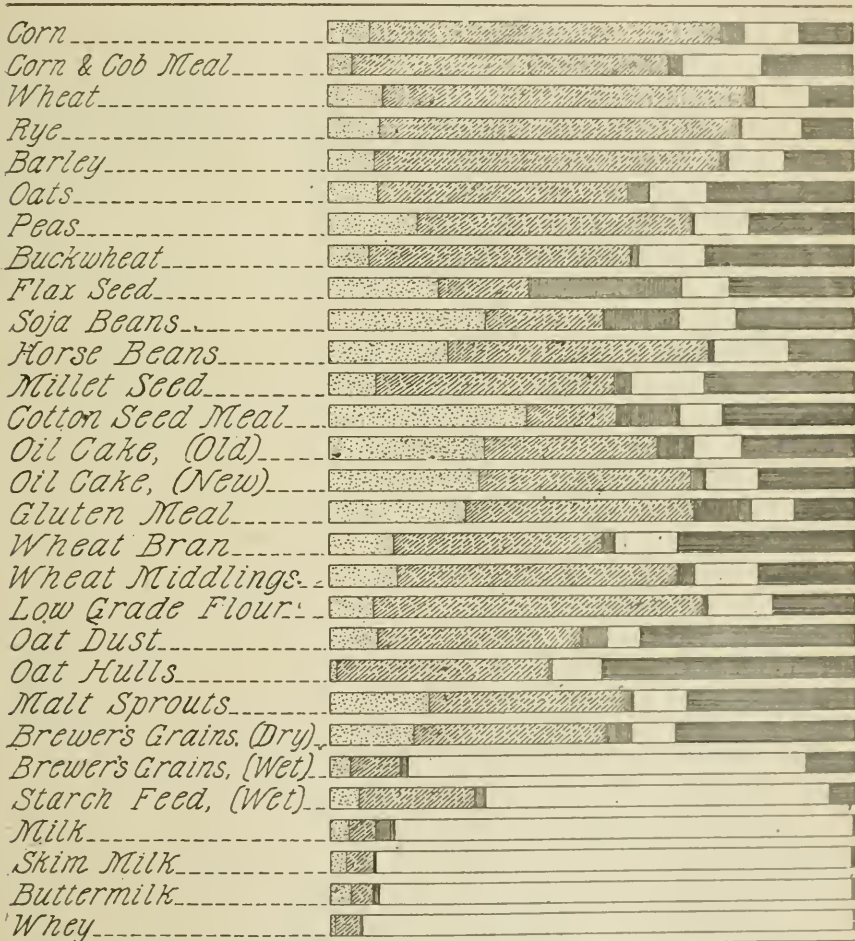 Corn
Corn & Cob Meal
Wheat
Rye
Barley
Oats
Peas
Buckwheat
Flax Seed
Soja Beans
Horse Beans
Millet Seed
Cotton Seed Meal
Oil Cake, (Old)
Oil Cake, (New)
Gluten Meal
Wheat Bran
Wheat Middlings
Low Grade Flour
Oat Dust
Oat Hulls
Malt Sprouts
Brewer's Grains. (Dry)
Brewer's Grains, (Wet)
Starch Feed, (Wet)
Milk
Skim Milk
Buttermilk
Whey